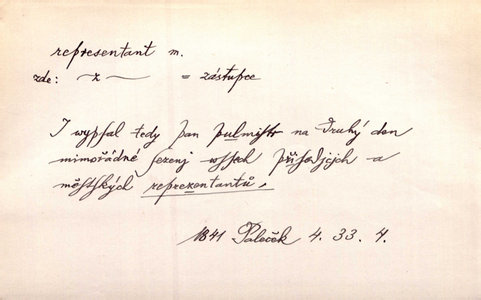 representant m.
zde: ~z~ = zástupce
I wypsal tedy pan pulmistr na druhý den
mimořádné sezenj wssech přísedjcjch a
městských reprezentantů.
1841 Paleček 4. 33. 4.